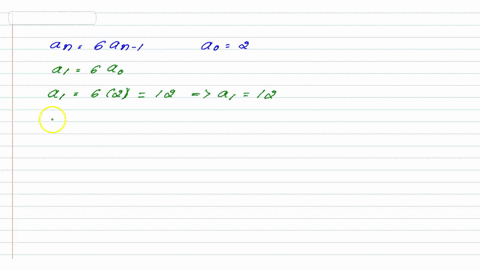 an = 6 an-1 a0 = 2
a1 = 6 a0
a1 = 6 (2) = 12 => a1 = 12